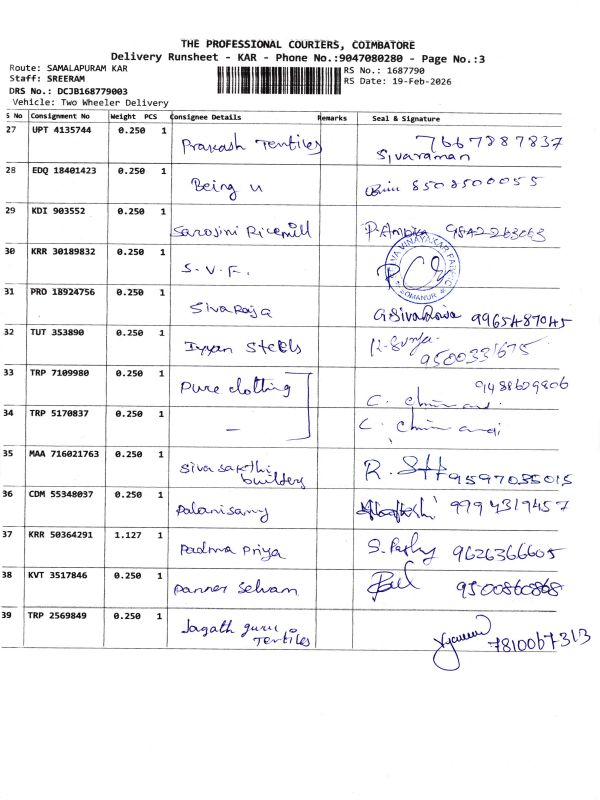 THE PROFESSIONAL COURIERS, COIMBATORE
Delivery Runsheet - KAR - Phone No.:9047080280 - Page No.:3
Route: SAMALAPURAM KAR
RS No.: 1687790
Staff: SREERAM
RS Date: 19-Feb-2026
DRS No.: DCJB168779003
Vehicle: Two Wheeler Delivery
S No Consignment No Weight PCS Consignee Details Remarks Seal & Signature
27 UPT 4135744 0.250 1 Prakash Textiles 7667887837
Sivaraman
28 EDQ 18401423 0.250 1 Being u 8508500055
29 KDI 903552 0.250 1 Sarojini Ricemill P. Ambika 9842263063
30 KRR 30189832 0.250 1 S.V.F.
VINAYAKAR FABRIC
SOMANUR
31 PRO 18924756 0.250 1 Sivaraja G Sivaraja 9965487045
32 TUT 353890 0.250 1 Iyyan Steels
9500331675
33 TRP 7109980 0.250 1 Pure clothing 9488609806
34 TRP 5170837 0.250 1 -
35 MAA 716021763 0.250 1 Siva Sakthi builders 9597035015
36 CDM 55348037 0.250 1 Palanisamy 9994319457
37 KRR 50364291 1.127 1 Padma Priya 9626366605
38 KVT 3517846 0.250 1 Panner Selvam 9500860868
39 TRP 2569849 0.250 1 Jagath guru Textiles 7810067313